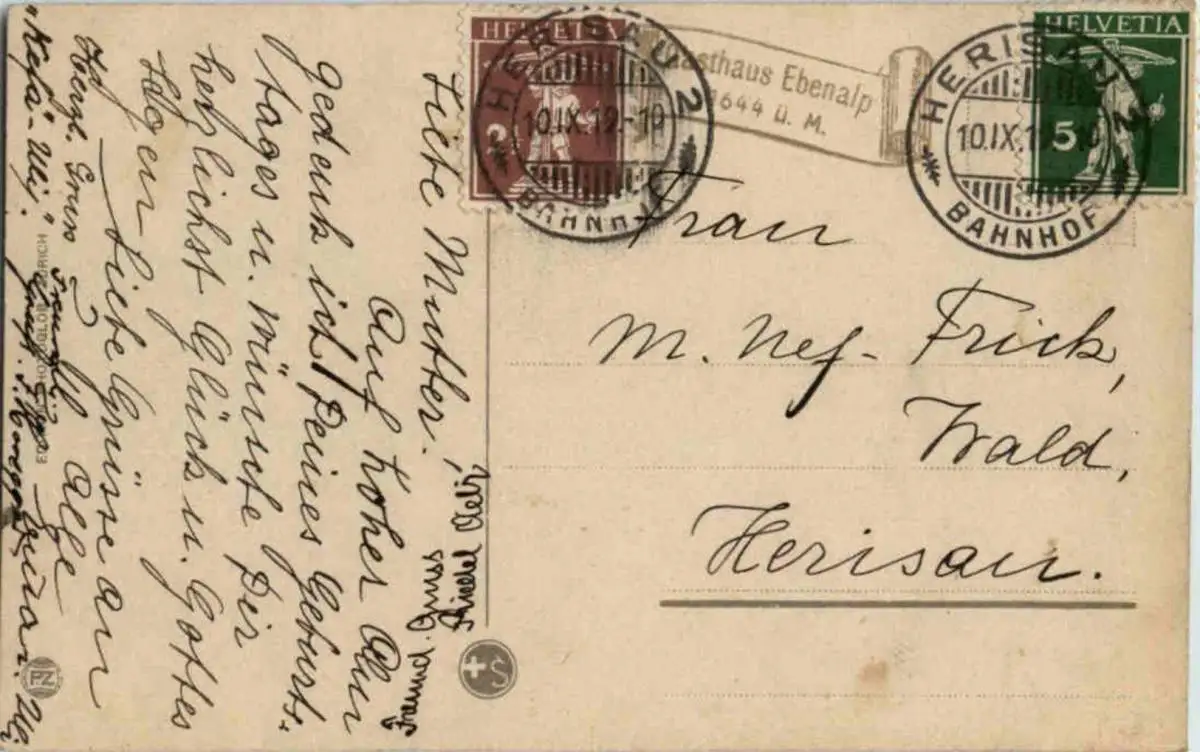 HELVETIA
HERISAU 2
10.IX.19.-10
BAHNHOF
Gasthaus Ebenalp
1644 ü. M.
HELVETIA
5
HERISAU 2
10.IX.19.-10
BAHNHOF
Frau
M. Nef-Frick,
Wald,
Herisau.
Liebe Mutter!
Auf hoher Alm
gedenk ich Deines Geburts-
tages u. wünsche Dir
herzlichst Glück u. Gottes
Segen
Liebe Grüsse an
Alle
Herzl. Gruss
"Kefa-Uli."
Freundl. Gruss
PZ